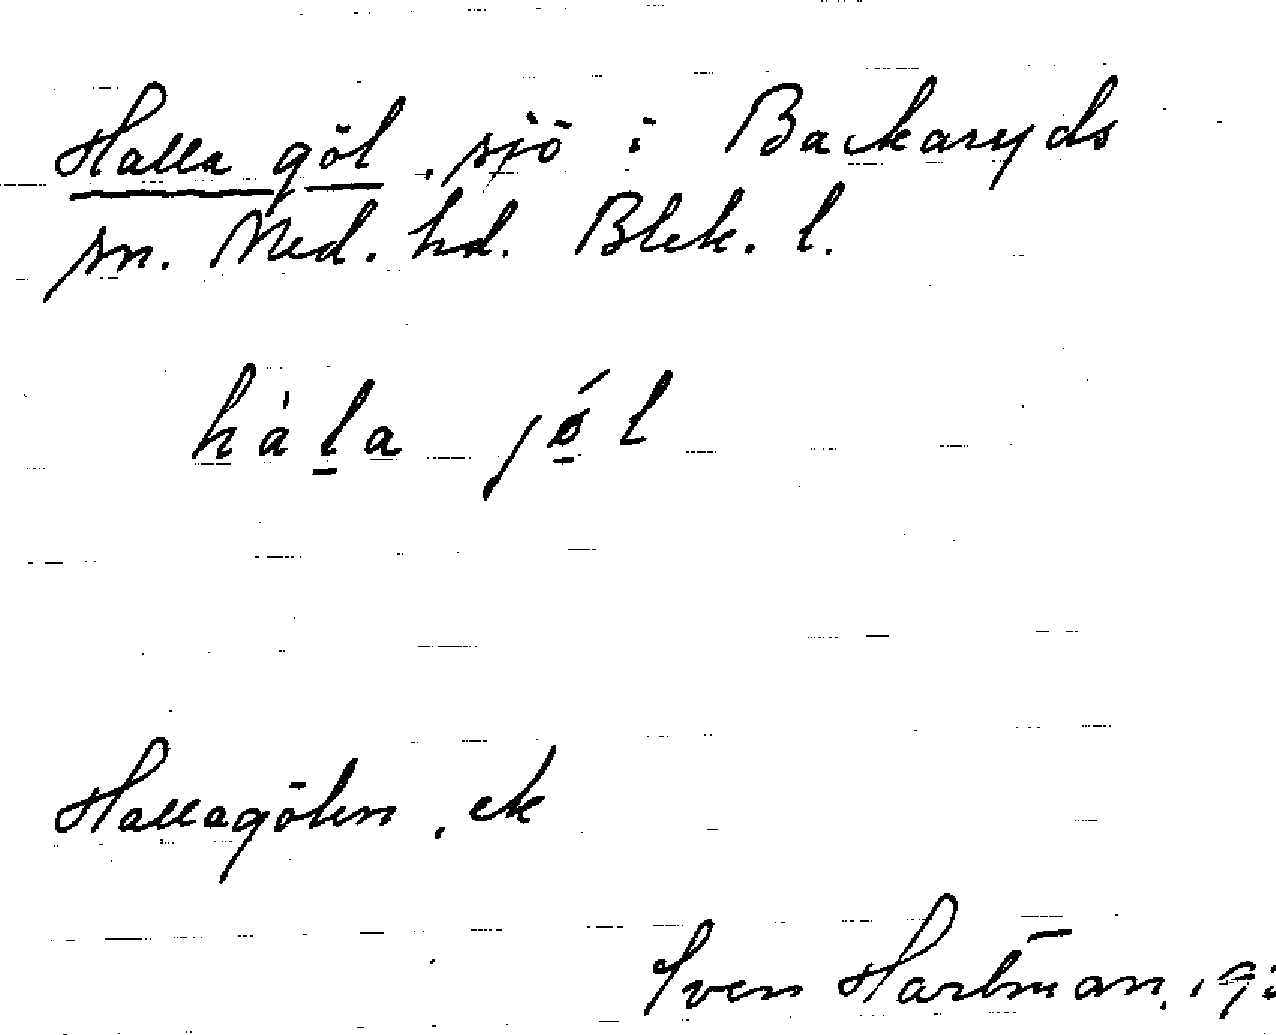 Halla göl, sjö i Backaryds
sn. Med. hd. Blek. l.
hàl̲a jǿ̲l
Hallagölen, ek
Sven Hartman, 19